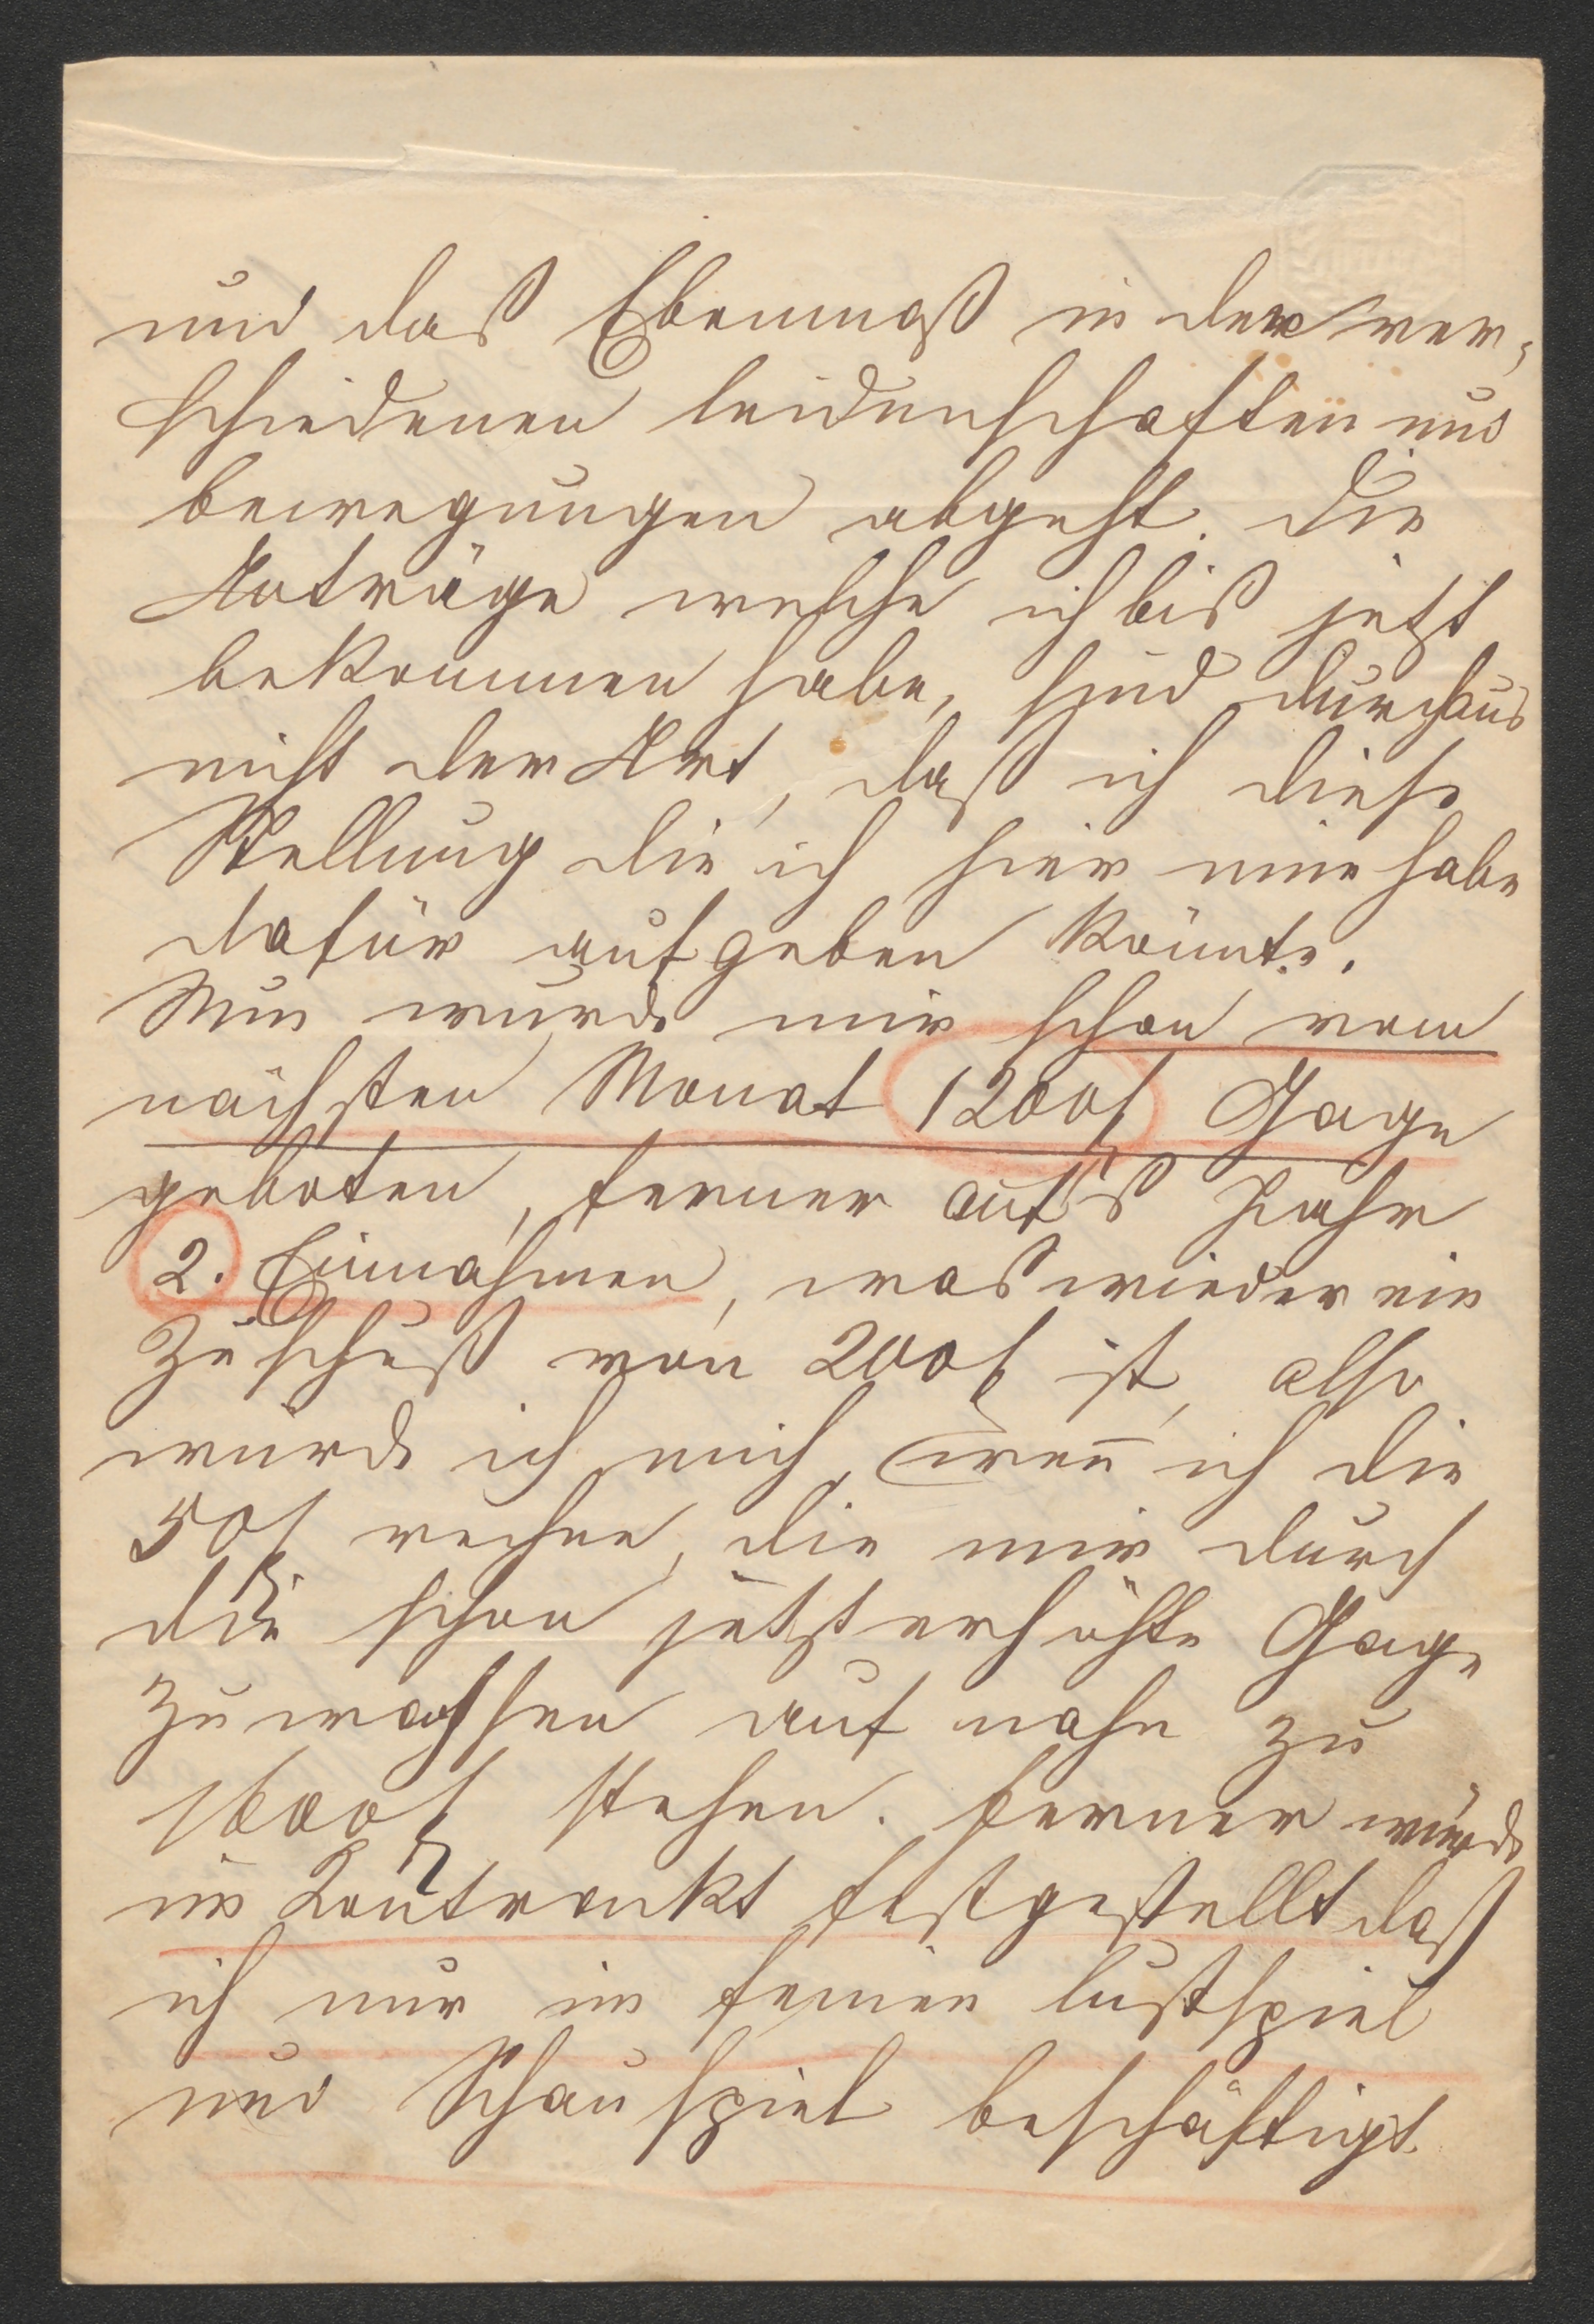 und daß Ebenmaß in den ver-
schiedenen leidenschaften und
bewegungen abgeht. Die
Anträge welche ich biß jetzt
bekommen habe, sind durchaus
nicht der Art, daß ich diese
Stellung die ich hier eine habe
dafür aufgeben könnte.
Nun wurde mir schon vom
nächsten Monat 1200f Gage
geboten, ferner auf's Jahr
2. Einnahmen, was wieder ein
Zuschuß von 200f ist, also
würde ich mich, wen̄ ich die
50f rechne, die mir durch
die schon jetzt erhöhte Gage
zuwachsen auf nahe zu
1600f stehen. ferner würde
im Kontrakt festgestellt daß
ich nur im feinen lustspiel
und Schauspiel beschäftigt